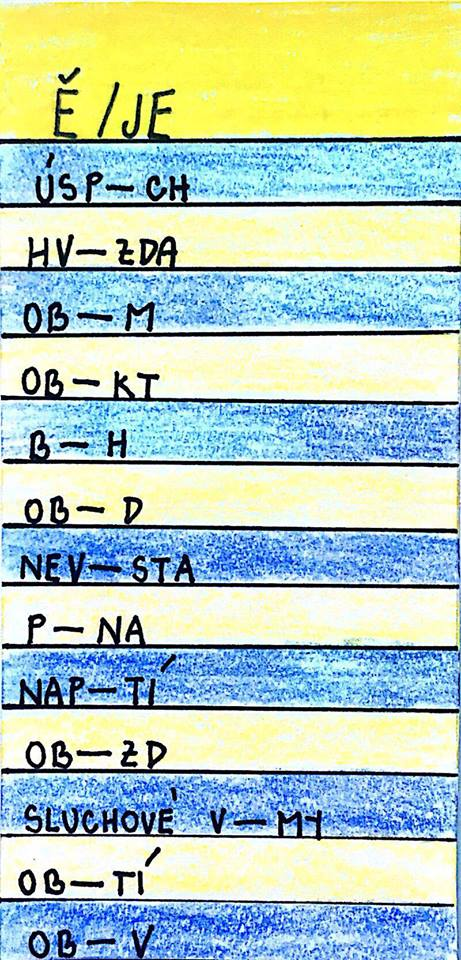 Ě/JE
ÚSP–CH
HV–ZDA
OB–M
OB–KT
B–H
OB–D
NEV–STA
P–NA
NAP–TÍ
OB–ZD
SLUCHOVÉ V–MY
OB–TÍ
OB–V